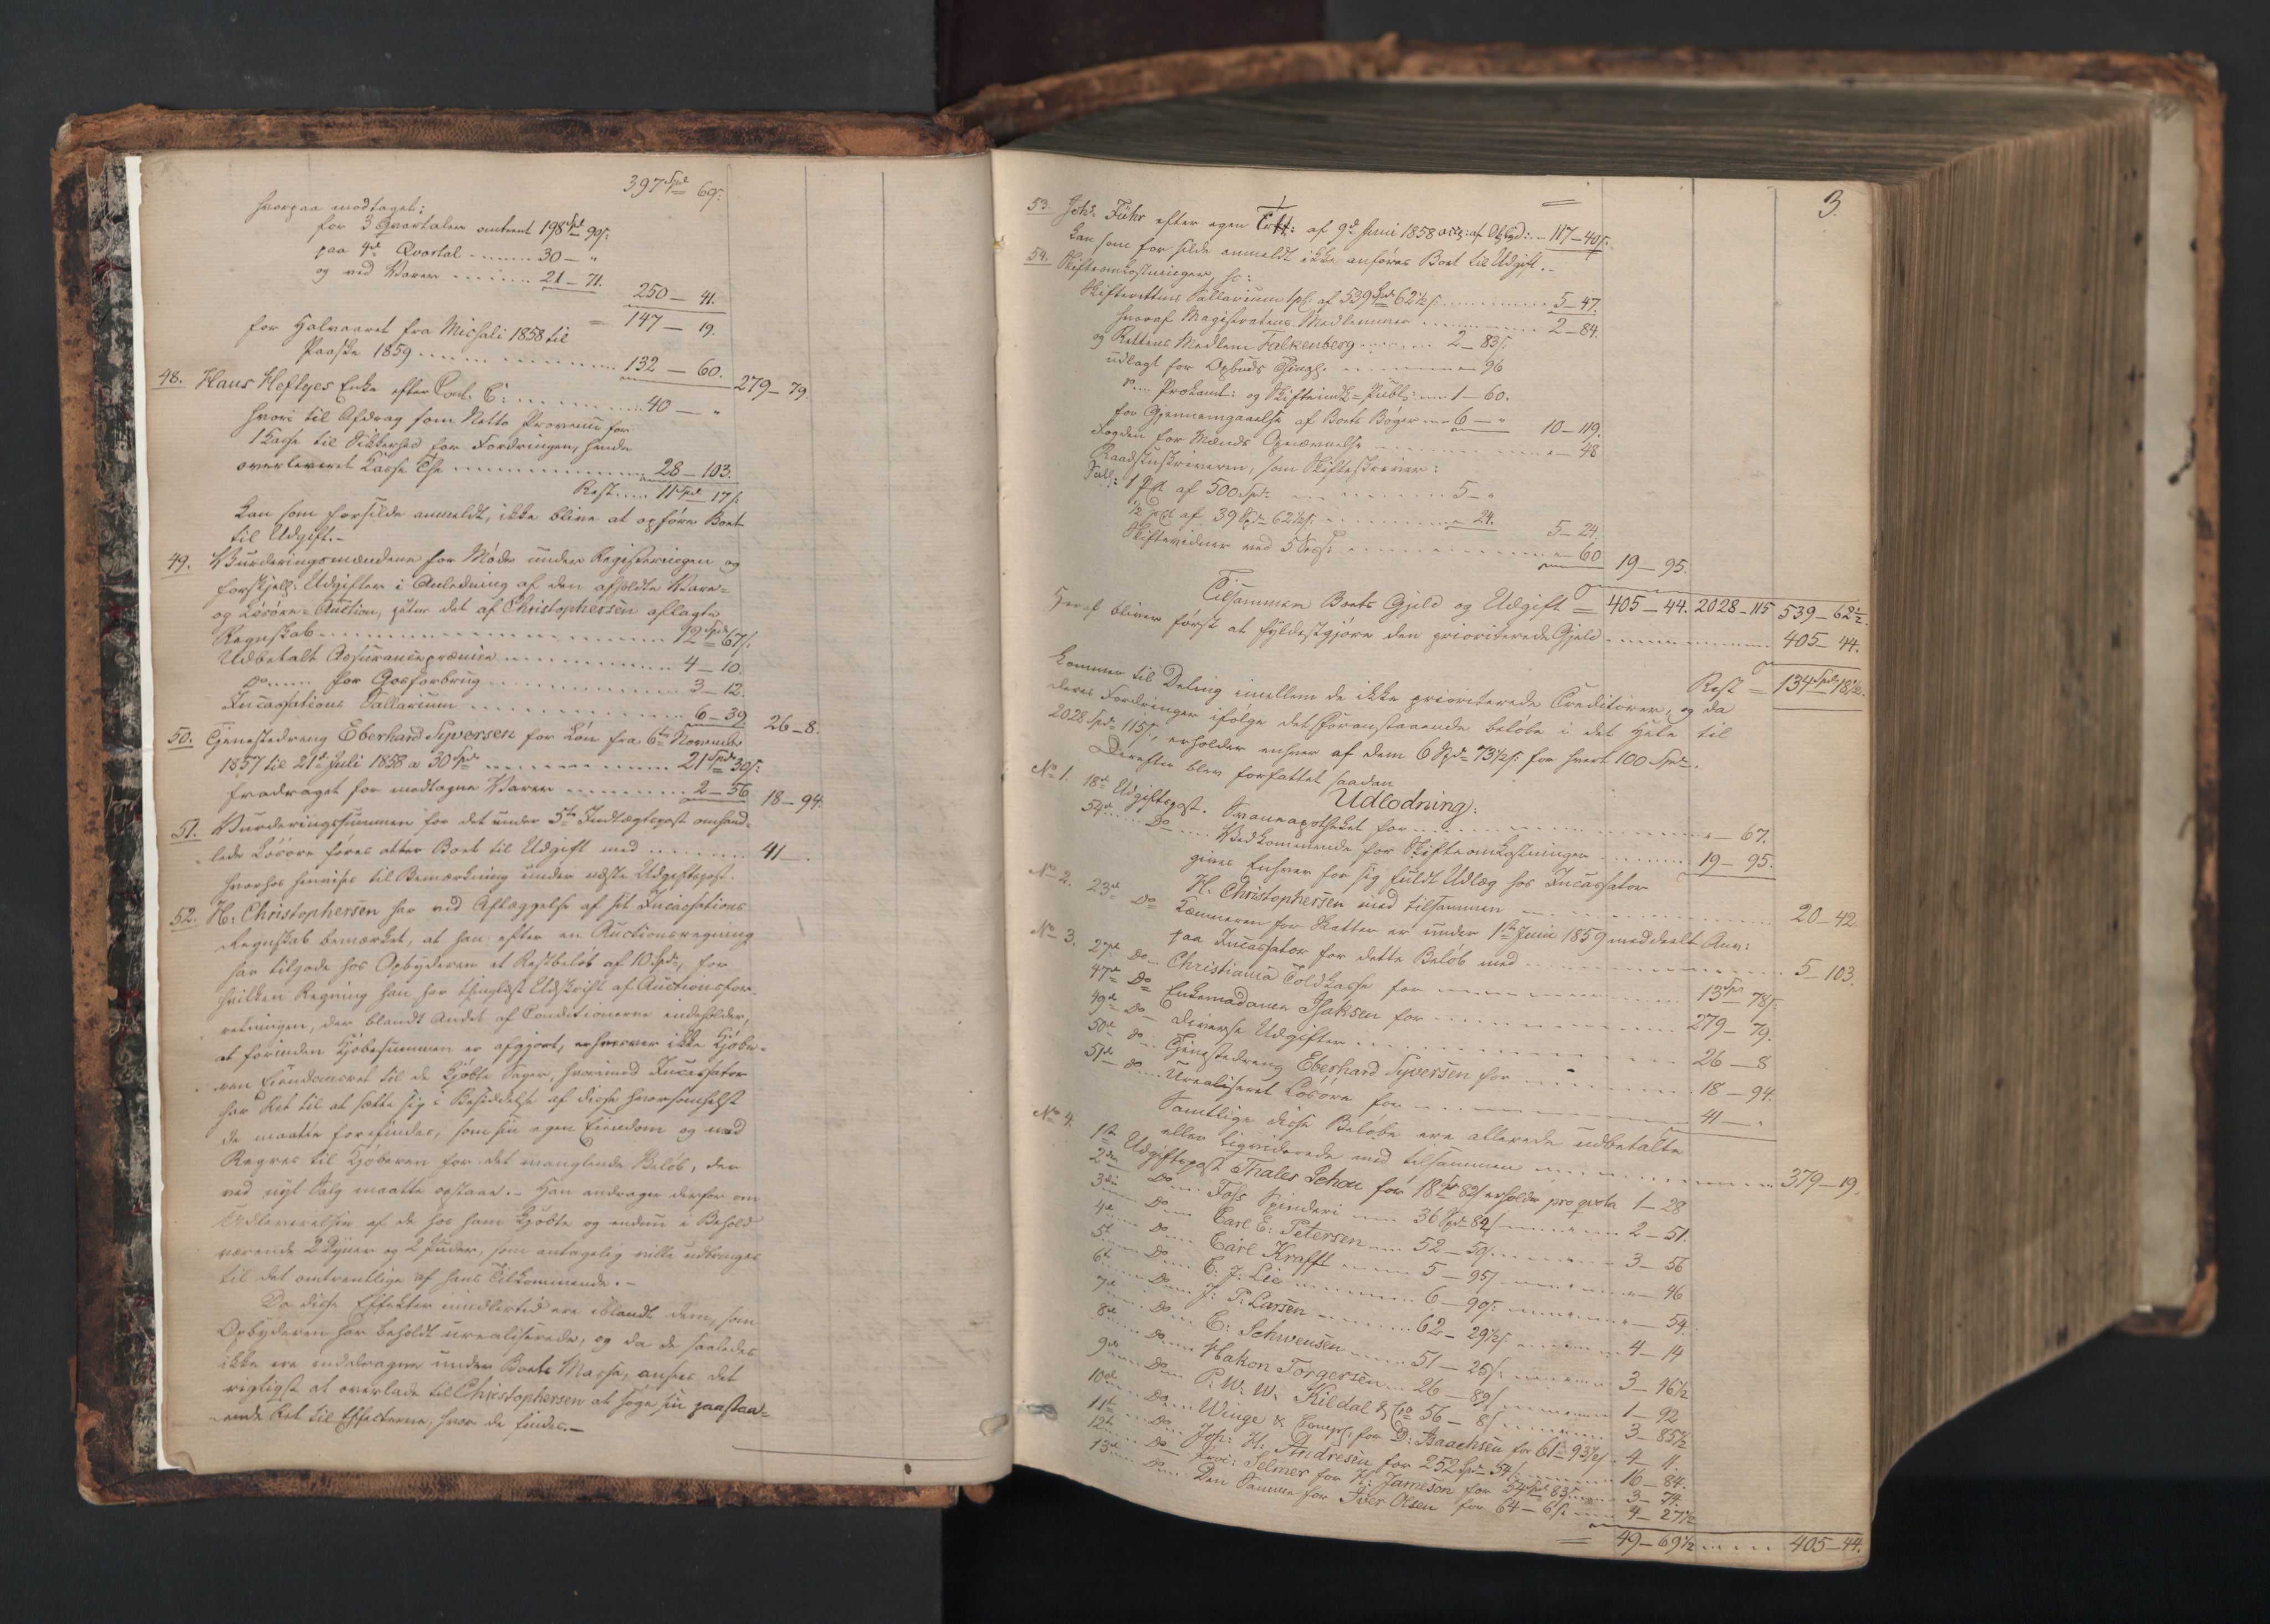 397 Spd 69.
hvorpaa modtaget:
for 3 Qvartaler omtrent 198 Spd 90/:
paa 4de Qvartal ........ 30 — "
og ved Varer ........ 21 — 71.
250 — 41.
= 147 — 19.
for Halvaaret fra Michali 1858 til
Paaske 1859 ........ 132 — 60. 279 — 79
48. Hans Heftyes Enke efter Cont. C: ........ 40 — "
hvori til Afdrag som Netto Provenu for
1 Kasse til Sikkerhed for Fordringen, hende
overleveret Kasse The ........ 28 — 103.
Rest .... 11 Spd 17/:
kan som forsilde anmeldt, ikke blive at opføre Boet
til Udgift. —
49. Vurderingsmændene for Møde under Registeringen og
forskjell: Udgifter i Anledning af den afholdte Vare-
og Løsøre-Auction, efter det af Christophersen aflagte
Regnskab ........ 12 Spd 67/:
Udbetalt Assurancepræmie ........ 4 — 10.
Do ..... for Gasforbrug ........ 3 — 12.
Incassations Sallarium ........ 6 — 39. 26 — 8.
50. Tjenestedreng Eberhard Syversen for Løn fra 6te November
1857 til 21de Juli 1858 a 30 Spd ........ 21 Spd 30/:
fradraget for modtagne Varer ........ 2 — 56 18 — 94.
51. Vurderingssummen for det under 5te Indtægtspost omhand-
lede Løsøre føres atter Boet til Udgift med ........ 41 — .
hvorhos henvises til Bemærkning under næste Udgiftspost.
52. H: Christophersen har ved Aflæggelse af sit Incassations
Regnskab bemærket, at han efter en Auctionsregning
har tilgode hos Opbyderen et Restbeløb af 10 Spd, for
hvilken Regning han har thinglæst Udskrift af Auctionsfor-
retningen, der blandt Andet af Conditionerne indeholder,
at forinden Kjøbesummen er afgjort, erhverver ikke Kjøbe-
ren Eiendomsret til de kjøbte Sager, hvorimod Incassator
har Ret til at sætte sig i Besiddelse af disse hvorsomhelst
de maatte forefindes, som sin egen Eiendom og med
Regres til Kjøberen for det manglende Beløb, der
ved nyt Salg maatte opstaae. — Han andrager derfor om
Udleverelsen af de hos ham kjøbte og endnu i Behold
værende 2 Dyner og 2 Puder, som antagelig ville udbringes
til det omtrentlige af hans Tilkommende. —
Da disse Effekter imidlertid ere iblandt dem, som
Opbyderen har beholdt urealiserede, og da de saaledes
ikke ere inddragne under Boets Masse, ansees det
rigtigst at overlade til Christophersen at søge sin paastaa-
ende Ret til Effecterne, hvor de findes. —
3.
53. Johs Führ efter egen af 9de Juni 1858 117 — 40/:
kan som for silde anmeldt ikke anføres Boet til Udgift. —
54. Skifteomkostninger, so:
Skifterettens Sallarium 1 pCt af 539 Spd 62½/: ........ 5 — 47.
hvoraf Magistratens Medlemmer ........ 2 — 84.
og Rettens Medlem Falkenberg ........ 2 — 83/:
udlagt for Opbuds ........ " — 96
Do .... Proclamt: og Skifteindk = Publ: ... 1 — 60.
for Gjennemgaaelse af Boets Bøger ... 6 — " 10 — 119.
Fogden for Mænds Opnævnelse ........ " — 48
Raadstuskriveren, som Skifteskriver:
Sall: 1 pCt af 500 Spd ........ 5 — "
½ pCt af 39 Spd 62½/: ........ " — 24. 5 — 24.
Skiftevidner ved 5 ........ " — 60 19 — 95.
Tilsammen Boets Gjeld og Udgift = 405 — 44. 2028 — 115 539 — 62½.
Heraf bliver først at fyldestgjøre den prioriterede Gjeld ........ 405 — 44.
Rest = 134 Spd 18½.
kommer til Deling imellem de ikke prioriterede Creditorer, og da
deres Fordringer ifølge det foranstaaende beløbe i det Hele til
2028 Spd 115/:, erholder enhver af dem 6 Spd 73½/: for hvert 100 Spd.
Derefter blev forfattet saadan
Udlodning:
No 1. 18de Udgiftspost. Svaneapotheket for ........ " — 67.
54de .... Do .... Vedkommende for Skifteomkostninger ........ 19 — 95.
gives Enhver for sig fuldt Udlæg hos Incassator
H. Christophersen med tilsammen ........ 20 — 42.
No 2. 23de Do Kæmneren for Skatter er under 1ste Juni 1859 meddeelt Anv:
paa Incassator for dette Beløb med ........ 5 — 103.
No 3. 27de Do .. Christiania Toldkasse for ........ 13 Spd 78/:
47de Do Enkemadame Isaksen for ........ 279 — 79.
49de Do Diverse Udgifter ........ 26 — 8
50de do .. Tjenestedreng Eberhard Syversen for ........ 18 — 94
51de do .... Urealiseret Løsøre for ........ 41 — .
Samtlige disse Beløbe ere allerede udbetalte
eller liqviderede med tilsammen ........ 379 — 19.
No 4. 1ste Udgiftspost Thales Schou for 18 Spd 82/ erholder pro qvota 1 — 28
2den .... Do .... Foss Spinderi .... 36 Spd 82/ ........ 2 — 51.
3die .... Do .... Carl E: Petersen .... 52 — 59/ ........ 3 — 56
4de .... Do .... Carl Krafft .... 5 — 95/ ........ " — 46
5te .... Do .... E: J: Lie ........ 6 — 90/: ........ " — 54.
6te .... Do .... J: P: Larsen ........ 62 — 29½/ ........ 4 — 14
7de .... Do .... E: Schwensen .... 51 — 25/: ........ 3 — 46½
8de .... Do .... Hakon Torgersen .. 26 — 82/ ........ 1 — 92
9de .... Do .... P: W: W: Kildal & Co 56 — 8/ ........ 3 — 85½
10de .... Do .... Winge & Compg. for D: Baachsen for 61 — 93½/ . 4 — 11.
11te .... Do .... Joh: H: Andresen for 252 Spd 54/: ........ 16 — 84.
12te .... Do .... Selmer for H: Jameson for 54 Spd 83/: .... 3 — 79.
13de .... Do .... Den Samme for Iver Olsen for 64 — 6/: .... 4 — 27½
= 49 — 69½ ..... 405 — 44.